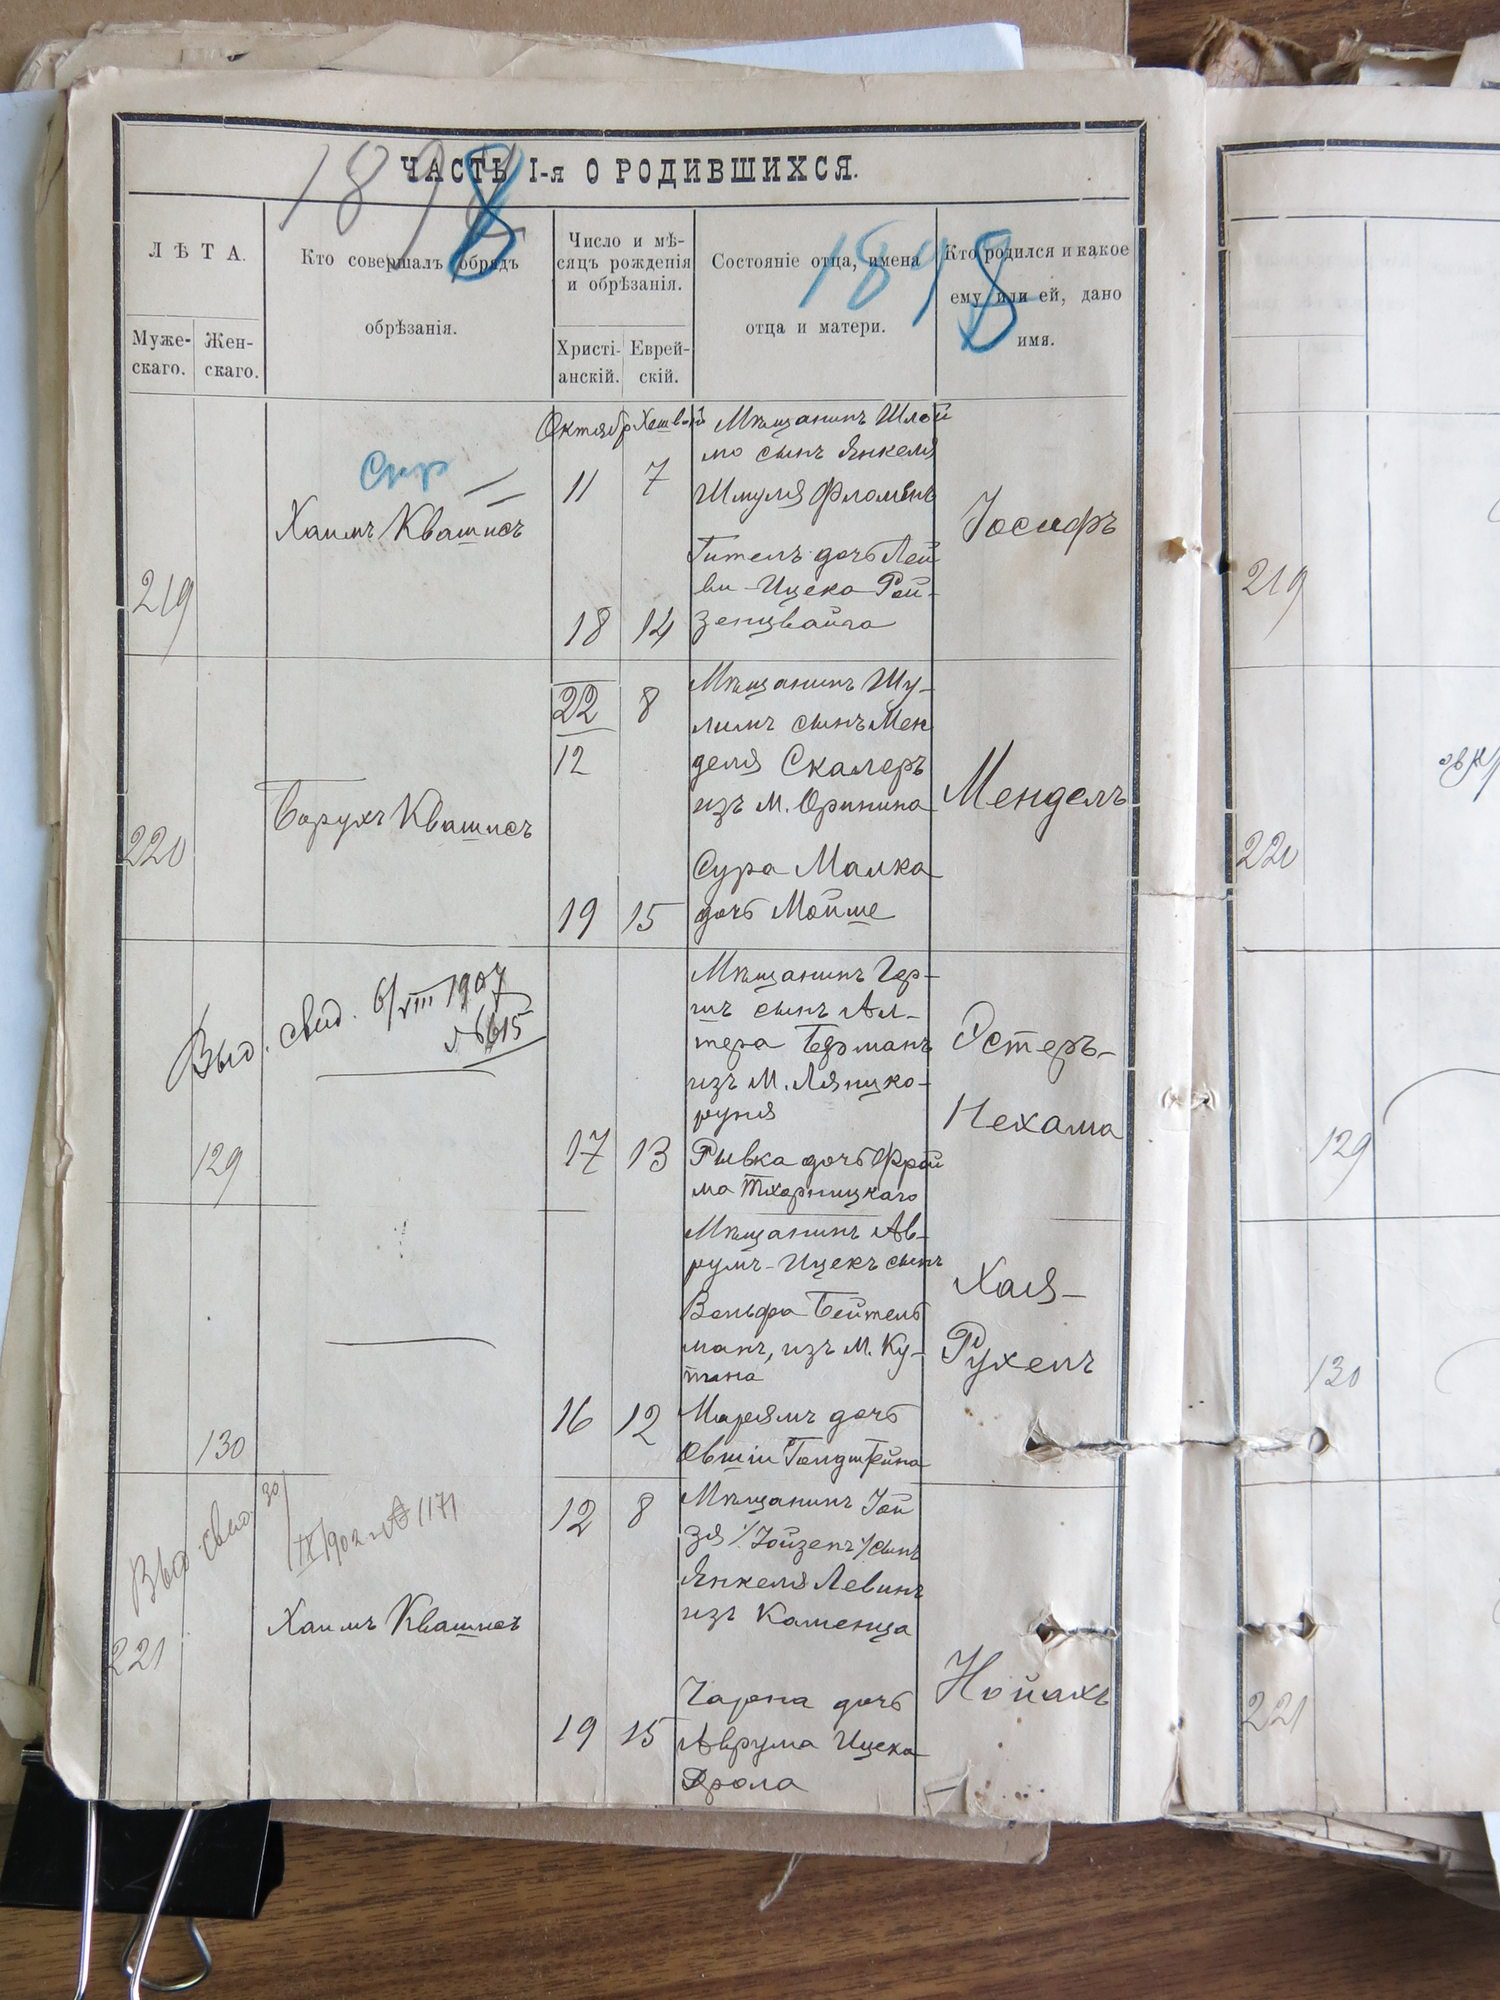 ЧАСТЬ I-я О РОДИВШИХСЯ.
1898
1898
ЛѢТА.
Муже-
скаго.
Жен-
скаго.
Кто совершалъ обрядъ
обрѣзанія.
Число и мѣ-
сяцъ рожденія
и обрѣзанія.
Христі-
анскій.
Еврей-
скій.
Состояніе отца, имена
отца и матери.
Кто родился и какое
ему или ей, дано
имя.
219
Хаимъ Квашисъ
Октябр
11
18
7
14
Мѣщанинъ Шлой
мо сынъ Янкеля
Шмуля
Гителъ дочь Лей
би-Ицека Рой-
зенцвайга
Іосифъ
219
220
Борухъ Квашисъ
22
12
19
8
15
Мѣщанинъ Шу-
лимъ сынъ Мен
деля Скалеръ
изъ м. Оринина
Сура Малка
дочь Мойше
Мендель
220
Выд. свид. 6/VIII 1907
№ 615
129
17
13
Мѣщанинъ Гер-
шъ сынъ Ал-
тера Берманъ
изъ м. Ляпцко-
руня
Рывка дочь Фрой
ма Тхорницкаго
Эстеръ-
Нехама
129
130
16
12
Мѣщанинъ Ав-
румъ-Ицекъ сынъ
Вольфа Бейтель
манъ, изъ м. Ку-
пина
Маріямъ дочь
Овшіи Голдштейна
Хая-
Рухель
130
Выд. свид. 30/IX 1902 г. № 1171
221
Хаимъ Квашисъ
12
19
8
15
Мѣщанинъ Іой
зя /Іойзепъ/ сынъ
Янкеля Левинъ
изъ Каменца
Чарна дочь
Аврума Ицека
Нойахъ
221